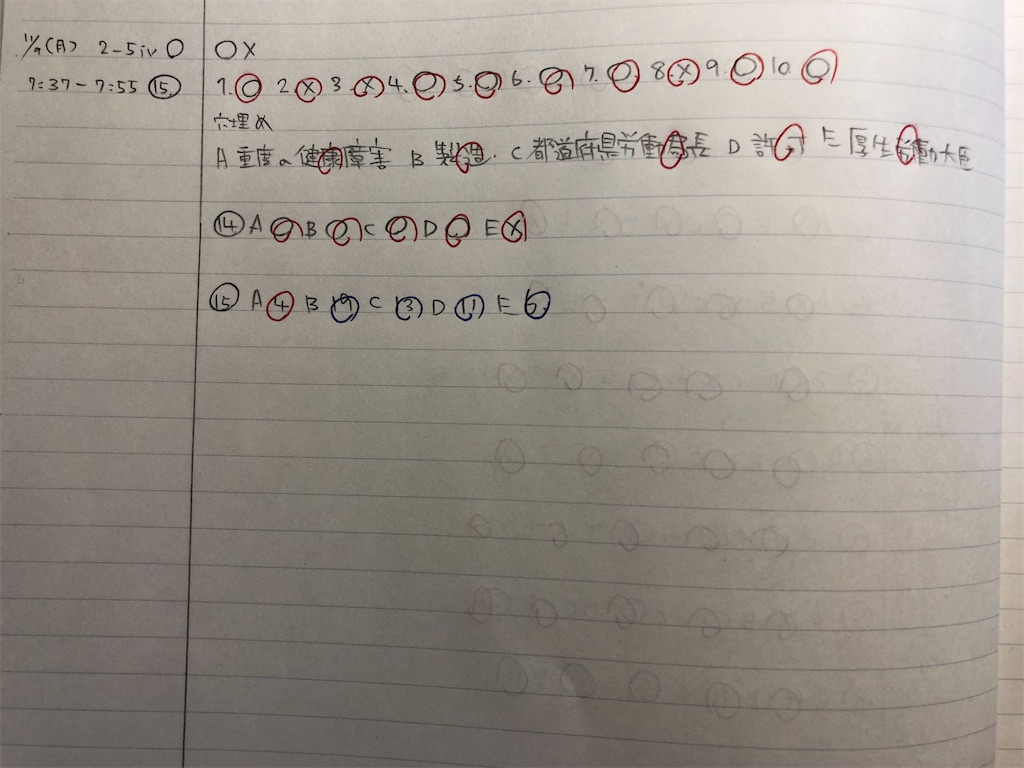 11/9(A) 2-5iv ○ ○×
7:37-7:55 ⑮ 1.○ 2× 3.× 4.○ 5.○ 6.○ 7.○ 8× 9.○ 10.○
穴埋め
A 重度の健康障害 B 製造. C 都道府県労働局長 D 許可 E 厚生労働大臣
⑭ A ○ B ○ C ○ D ○ E ×
⑮ A ④ B C ⑬ D ⑪ E